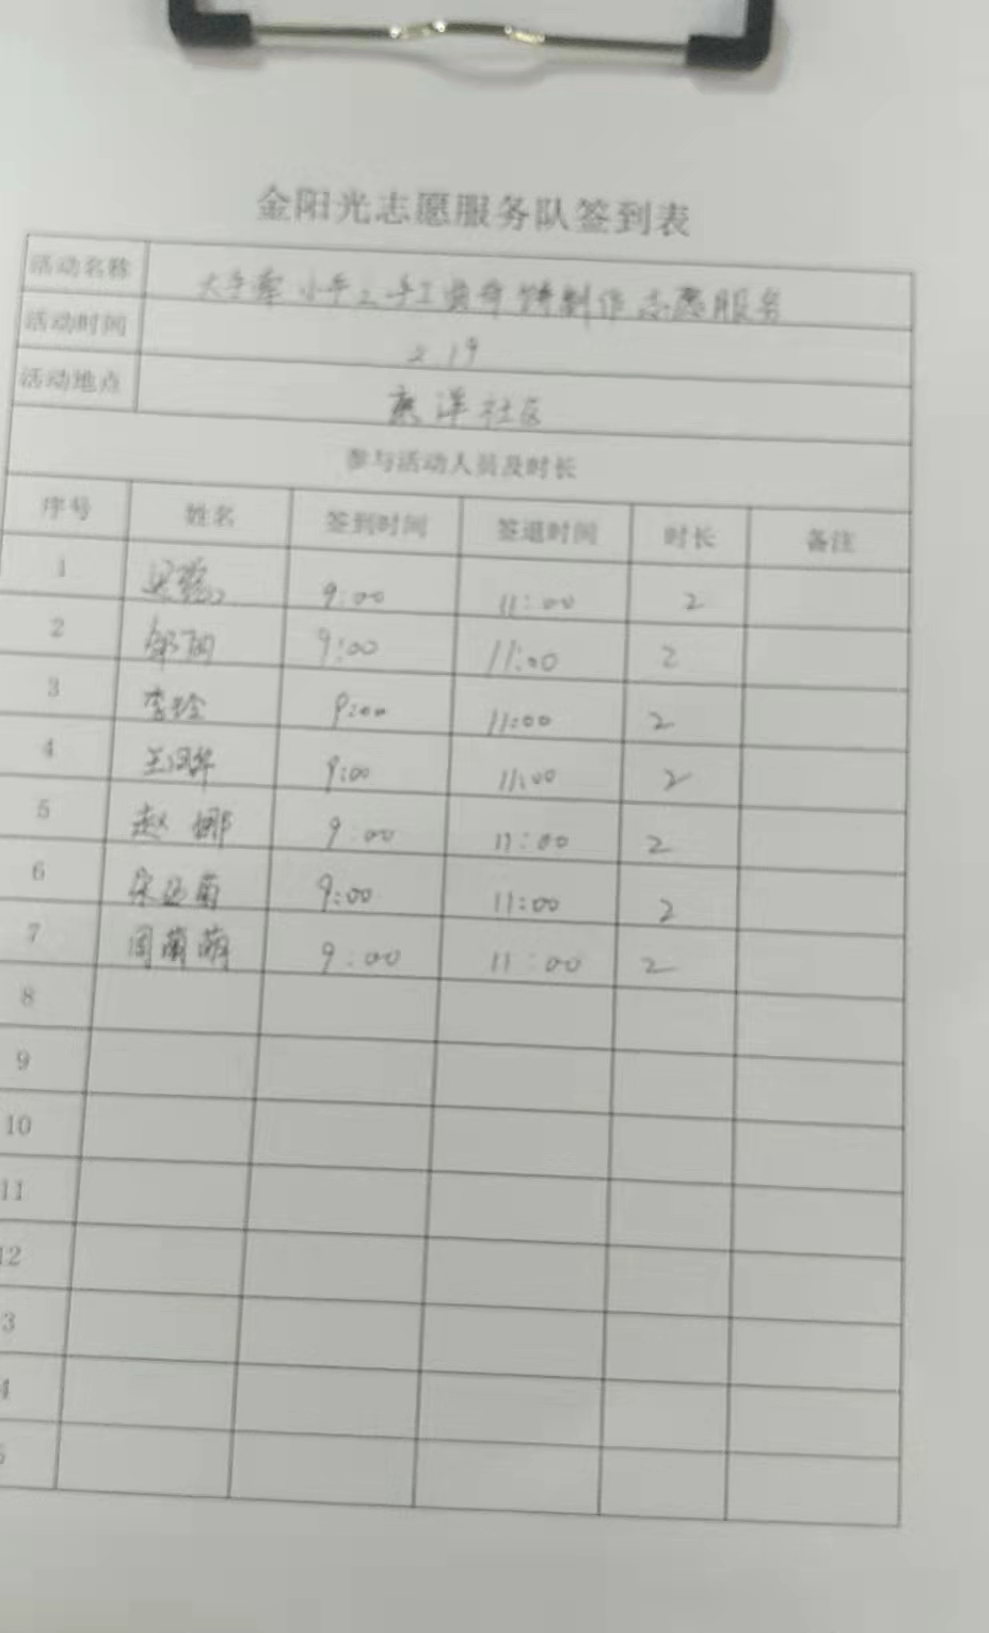 金阳光志愿服务队签到表
活动名称 大手牵小手之手工 制作志愿服务
活动时间 2.19
活动地点 惠洋社区
参与活动人员及时长
序号 姓名 签到时间 签退时间 时长 备注
1 9:00 11:00 2
2 9:00 11:00 2
3 李玲 9:00 11:00 2
4 9:00 11:00 2
5 赵娜 9:00 11:00 2
6 9:00 11:00 2
7 周萌萌 9:00 11:00 2
8
9
10
11
12
3
4
5